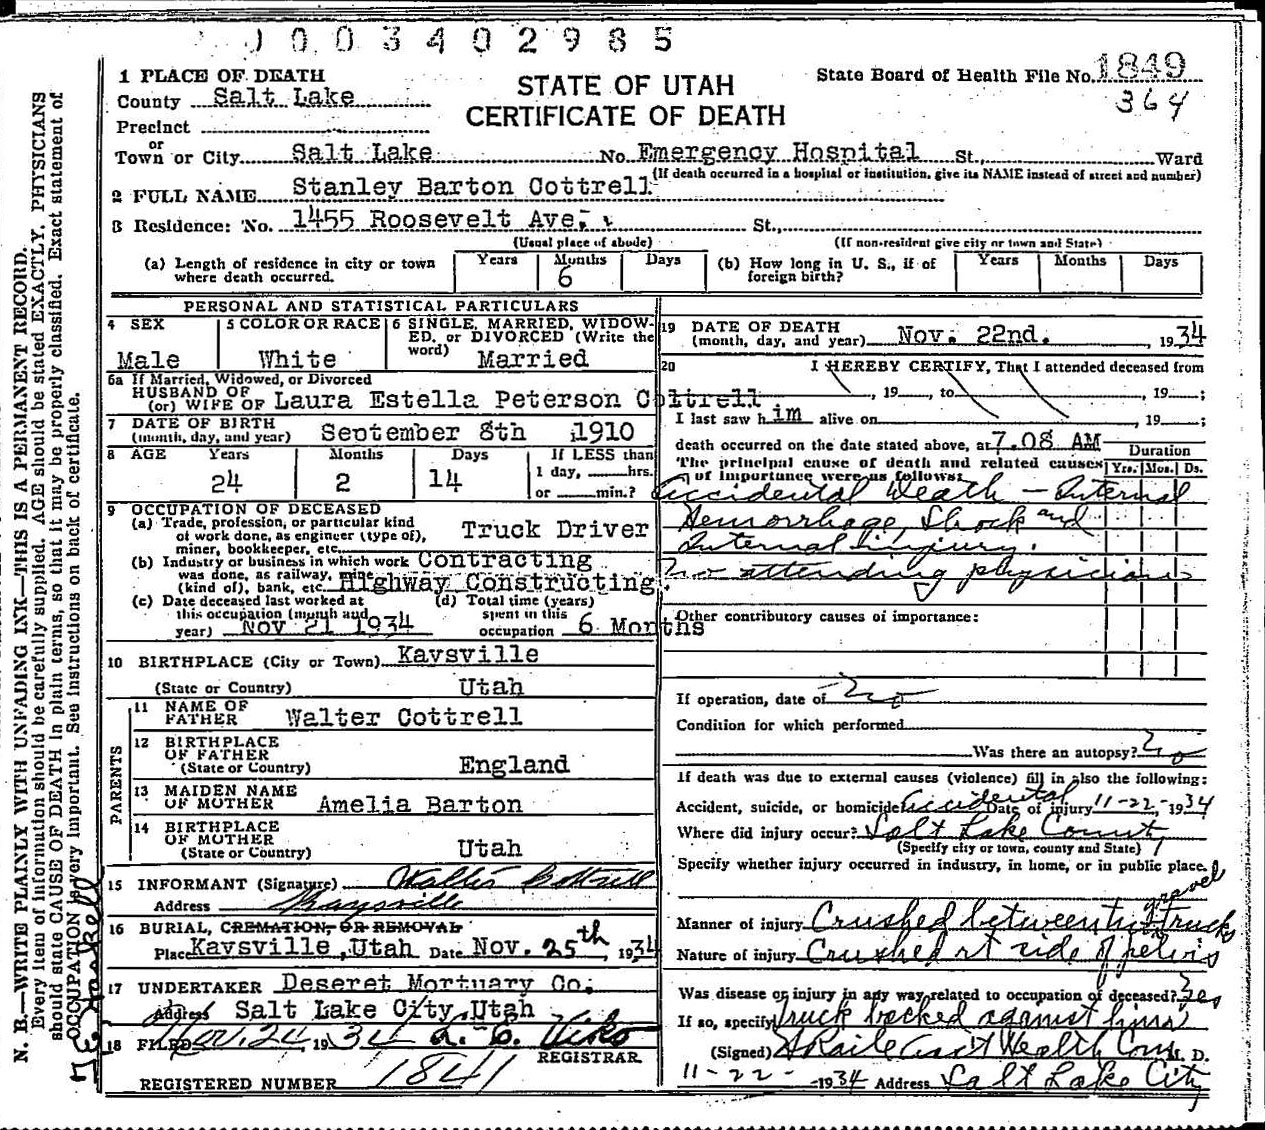 1003402985
1 PLACE OF DEATH
STATE OF UTAH
CERTIFICATE OF DEATH
State Board of Health File No. 1849
364
County Salt Lake
Precinct
or
Town or City Salt Lake No. Emergency Hospital St., Ward
(If death occurred in a hospital or institution, give its NAME instead of street and number)
2 FULL NAME Stanley Barton Cottrell
3 Residence: No. 1455 Roosevelt Ave, St.,
(Usual place of abode) (If non-resident give city or town and State)
(a) Length of residence in city or town where death occurred. Years Months 6 Days (b) How long in U. S., if of foreign birth? Years Months Days
PERSONAL AND STATISTICAL PARTICULARS
4 SEX Male
5 COLOR OR RACE White
6 SINGLE, MARRIED, WIDOWED, or DIVORCED (Write the word) Married
6a If Married, Widowed, or Divorced
HUSBAND OF
(or) WIFE OF Laura Estella Peterson Cottrell
7 DATE OF BIRTH
(month, day, and year) September 8th 1910
8 AGE Years 24 Months 2 Days 14 If LESS than 1 day, hrs. or min.?
9 OCCUPATION OF DECEASED
(a) Trade, profession, or particular kind
of work done, as engineer (type of),
miner, bookkeeper, etc. Truck Driver
(b) Industry or business in which work Contracting
was done, as railway,
(kind of), bank, etc. Highway Constructing.
(c) Date deceased last worked at
this occupation (month and
year) Nov 21 1934
(d) Total time (years)
spent in this
occupation 6 Months
10 BIRTHPLACE (City or Town) Kaysville
(State or Country) Utah
PARENTS
11 NAME OF
FATHER Walter Cottrell
12 BIRTHPLACE
OF FATHER
(State or Country) England
13 MAIDEN NAME
OF MOTHER Amelia Barton
14 BIRTHPLACE
OF MOTHER
(State or Country) Utah
15 INFORMANT (Signature) Walter Cottrell
Address Kaysville
16 BURIAL, CREMATION, OR REMOVAL
Place Kaysville, Utah Date Nov. 25th, 1934
17 UNDERTAKER Deseret Mortuary Co.
Address Salt Lake City, Utah
18 FILED Nov. 24, 1934
REGISTRAR
REGISTERED NUMBER 1841
19 DATE OF DEATH
(month, day, and year) Nov. 22nd., 1934
20 I HEREBY CERTIFY, That I attended deceased from
, 19 , to , 19 ;
I last saw him alive on , 19 ;
death occurred on the date stated above, at 7.08 AM
The principal cause of death and related causes of importance were as follows: Duration Yrs. Mos. Ds.
Accidental Death — Internal
Hemorrhage, Shock and
Internal injury.
No attending physician
Other contributory causes of importance:
If operation, date of No
Condition for which performed
Was there an autopsy? No
If death was due to external causes (violence) fill in also the following:
Accident, suicide, or homicide? Accidental Date of injury 11-22-, 1934
Where did injury occur? Salt Lake County
(Specify city or town, county and State)
Specify whether injury occurred in industry, in home, or in public place.
gravel
Manner of injury Crushed between two trucks
Nature of injury Crushed rt side of pelvis
Was disease or injury in any way related to occupation of deceased? Yes
If so, specify truck backed against him
(Signed) M. D.
11-22-1934 Address Salt Lake City
N. B.—WRITE PLAINLY WITH UNFADING INK—THIS IS A PERMANENT RECORD.
Every item of information should be carefully supplied. AGE should be stated EXACTLY. PHYSICIANS
should state CAUSE OF DEATH in plain terms, so that it may be properly classified. Exact statement of
OCCUPATION is very important. See instructions on back of certificate.